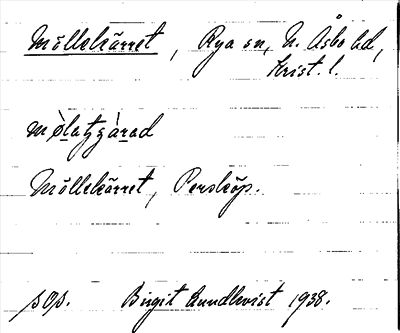 Möllekärret, Rya sn, N. Åsbo hd,
Krist. l.
Möllekärret, Perstorp.
sOp. Birgit Lundkvist 1938.